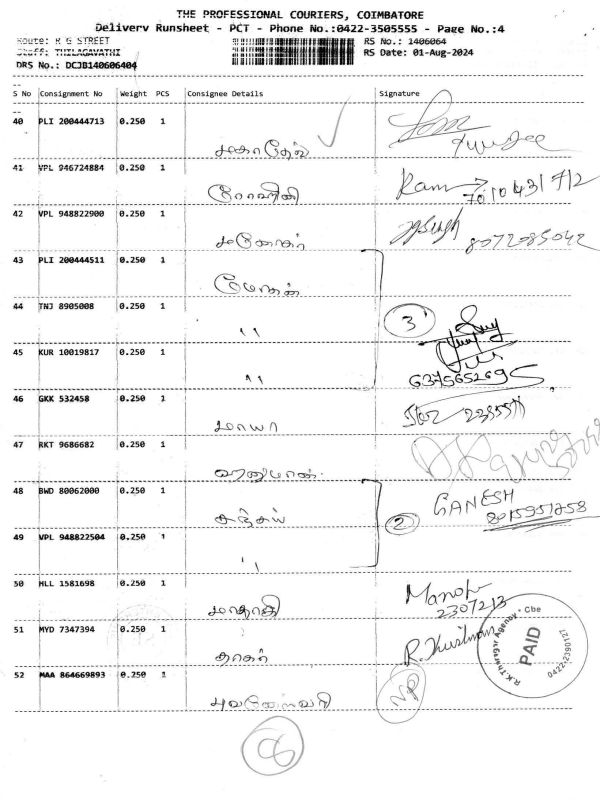 THE PROFESSIONAL COURIERS, COIMBATORE
Delivery Runsheet - PCT - Phone No.:0422-3505555 - Page No.:4
Route: R G STREET RS No.: 1406064
Staff: THILAGAVATHI RS Date: 01-Aug-2024
DRS No.: DCJB140606404
S No Consignment No Weight PCS Consignee Details Signature
40 PLI 200444713 0.250 1
41 VPL 946724884 0.250 1 Ram
42 VPL 948822900 0.250 1 மனோகர் 8072085042
43 PLI 200444511 0.250 1
44 TNJ 8905008 0.250 1 " 3
45 KUR 10019817 0.250 1 "
6375652695
46 GKK 532458 0.250 1 மாயா
47 RKT 9686682 0.250 1 ஹனுமான்
48 BWD 80062000 0.250 1 சஞ்சய் 2 GANESH
49 VPL 948822504 0.250 1 "
50 HLL 1581698 0.250 1 Manoj
2307213
51 MYD 7347394 0.250 1 R.
52 MAA 864669893 0.250 1 புவனேஸ்வரி
R.K.Thiyagar Agency * Cbe
PAID
0422-2390127